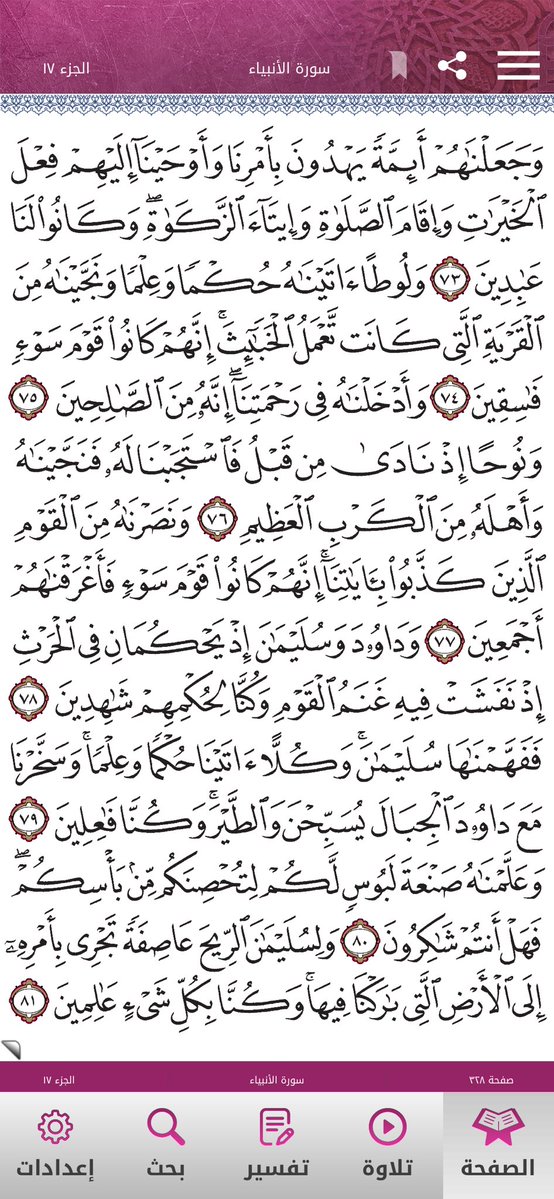 سورة الأنبياء
الجزء ١٧
وَجَعَلْنَٰهُمْ أَئِمَّةً يَهْدُونَ بِأَمْرِنَا وَأَوْحَيْنَآ إِلَيْهِمْ فِعْلَ
ٱلْخَيْرَٰتِ وَإِقَامَ ٱلصَّلَوٰةِ وَإِيتَآءَ ٱلزَّكَوٰةِ ۖ وَكَانُوا۟ لَنَا
عَٰبِدِينَ ٧٣ وَلُوطًا ءَاتَيْنَٰهُ حُكْمًا وَعِلْمًا وَنَجَّيْنَٰهُ مِنَ
ٱلْقَرْيَةِ ٱلَّتِى كَانَت تَّعْمَلُ ٱلْخَبَٰٓئِثَ ۗ إِنَّهُمْ كَانُوا۟ قَوْمَ سَوْءٍ
فَٰسِقِينَ ٧٤ وَأَدْخَلْنَٰهُ فِى رَحْمَتِنَآ ۖ إِنَّهُۥ مِنَ ٱلصَّٰلِحِينَ ٧٥
وَنُوحًا إِذْ نَادَىٰ مِن قَبْلُ فَٱسْتَجَبْنَا لَهُۥ فَنَجَّيْنَٰهُ
وَأَهْلَهُۥ مِنَ ٱلْكَرْبِ ٱلْعَظِيمِ ٧٦ وَنَصَرْنَٰهُ مِنَ ٱلْقَوْمِ
ٱلَّذِينَ كَذَّبُوا۟ بِـَٔايَٰتِنَآ ۚ إِنَّهُمْ كَانُوا۟ قَوْمَ سَوْءٍ فَأَغْرَقْنَٰهُمْ
أَجْمَعِينَ ٧٧ وَدَاوُۥدَ وَسُلَيْمَٰنَ إِذْ يَحْكُمَانِ فِى ٱلْحَرْثِ
إِذْ نَفَشَتْ فِيهِ غَنَمُ ٱلْقَوْمِ وَكُنَّا لِحُكْمِهِمْ شَٰهِدِينَ ٧٨
فَفَهَّمْنَٰهَا سُلَيْمَٰنَ ۚ وَكُلًّا ءَاتَيْنَا حُكْمًا وَعِلْمًا ۚ وَسَخَّرْنَا
مَعَ دَاوُۥدَ ٱلْجِبَالَ يُسَبِّحْنَ وَٱلطَّيْرَ ۚ وَكُنَّا فَٰعِلِينَ ٧٩
وَعَلَّمْنَٰهُ صَنْعَةَ لَبُوسٍ لَّكُمْ لِتُحْصِنَكُم مِّنۢ بَأْسِكُمْ ۖ
فَهَلْ أَنتُمْ شَٰكِرُونَ ٨٠ وَلِسُلَيْمَٰنَ ٱلرِّيحَ عَاصِفَةً تَجْرِى بِأَمْرِهِۦٓ
إِلَى ٱلْأَرْضِ ٱلَّتِى بَٰرَكْنَا فِيهَا ۚ وَكُنَّا بِكُلِّ شَىْءٍ عَٰلِمِينَ ٨١
صفحة ٣٢٨
سورة الأنبياء
الجزء ١٧
الصفحة
تلاوة
تفسير
بحث
إعدادات